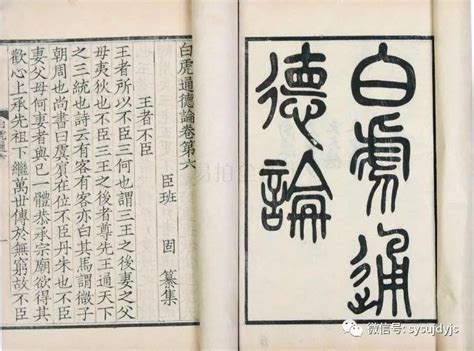 白虎通
德論
白虎通德論卷第六
臣班 固 纂集
王者不臣
王者所以不臣三何也謂三王之後妻之父
母夷狄也不臣三王之後者尊先王通天下
之三統也詩云有客有客亦白其馬謂微子
朝周也尚書曰虞賓在位不臣丹朱也不臣
妻父母何妻者與己一體恭承宗廟欲得其
歡心上承先祖下繼萬世傳於無窮故不臣
微信号: sysujdyjs